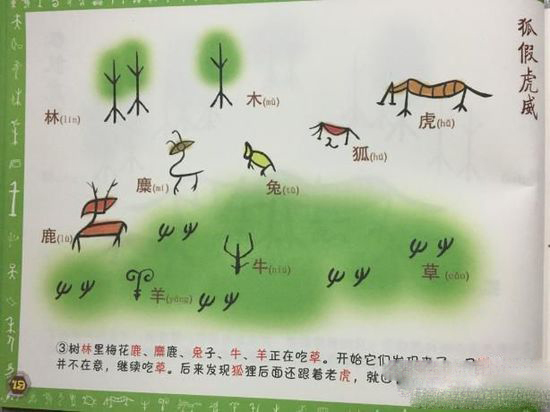 狐假虎威
林(lín)
木(mù)
虎(hǔ)
狐(hú)
麋(mí)
兔(tù)
鹿(lù)
牛(niú)
草(cǎo)
羊(yáng)
③树林里梅花鹿、麋鹿、兔子、牛、羊正在吃草。开始它们发现
并不在意，继续吃草。后来发现狐狸后面还跟着老虎，就
19